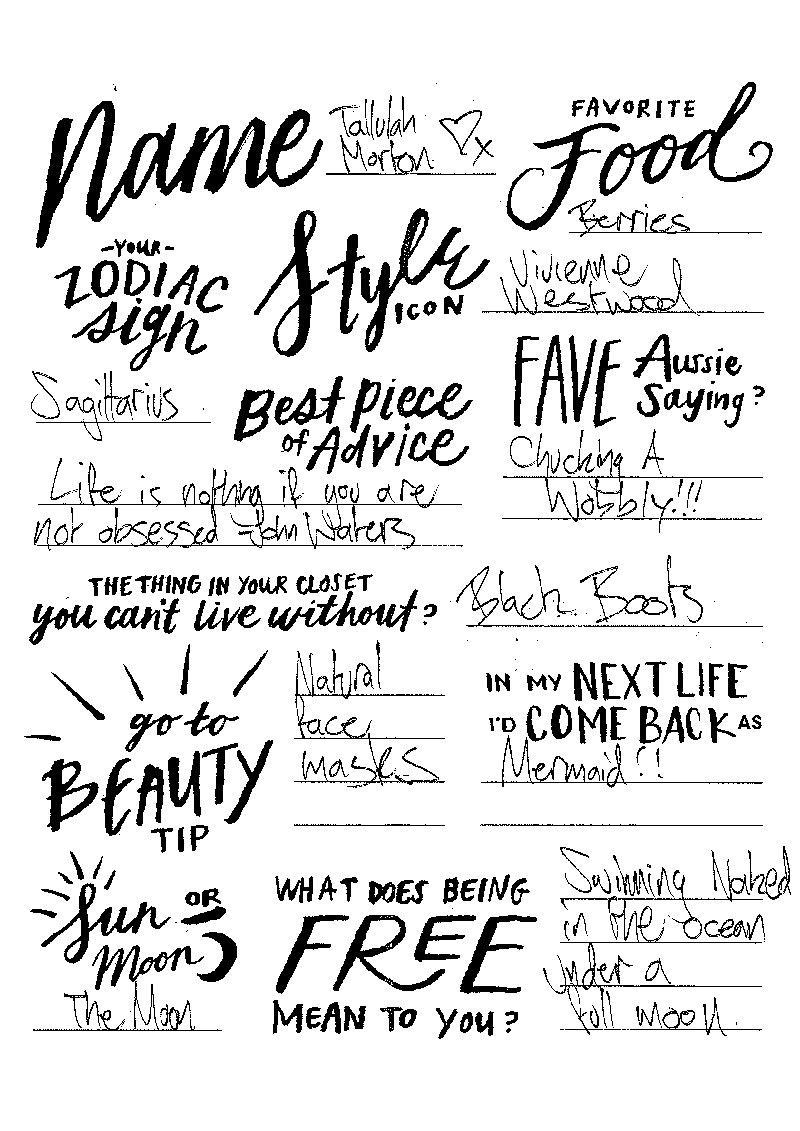 Name
Tallulah
Morton x
FAVORITE
Food
Berries
-YOUR-
ZODIAC
sign
Sagittarius
Style
ICON
Vivienne
Westwood
Best piece
of Advice
Life is nothing if you are
not obsessed -John Waters
FAVE Aussie
Saying?
Chucking A
Wobbly!!!
THE THING IN YOUR CLOSET
you can't live without?
Black Boots
go to
BEAUTY
TIP
Natural
face
masks
IN MY NEXT LIFE
I'D COME BACK AS
Mermaid!!
Sun OR
Moon
The Moon
WHAT DOES BEING
FREE
MEAN TO YOU?
Swimming Naked
in the ocean
under a
full moon.